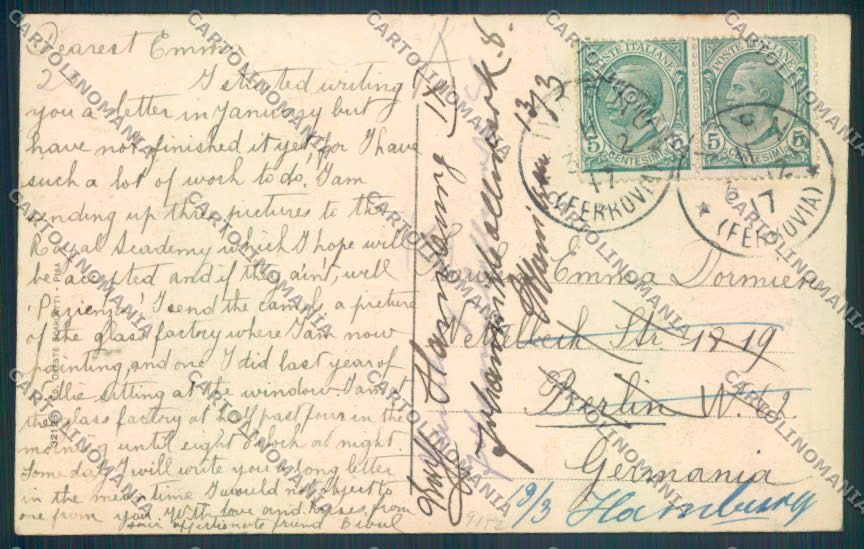 Dearest Emma
2 I started writing
you a letter in January but
have not finished it yet, for I have
such a lot of work to do. I am
sending up three pictures to the
Royal Academy which I hope will
be accepted and if they aint, well
'Pazienza'. I send the camels, a picture
of the glass factory where I am now
painting, and one I did last year of
sitting at the window. I am at
the glass factory at half past four in the
morning until eight o'clock at night.
Some day I will write you a long letter
in the mean time I would not object to
one from you. With love and kisses, from
your affectionate friend
32126 ED. ORESTE SCARLATTI PISA
POSTE ITALIANE
5 CENTESIMI 5
POSTE ITALIANE
5 CENTESIMI 5
17
(FERROVIA)
17
(FERROVIA)
Frau Emma Dormien
Nettelbeck Str. 17-19
Berlin W. 62
Germania
19/3 Hamburg
Hamburg 14
13/3
9182
CARTOLINOMANIA